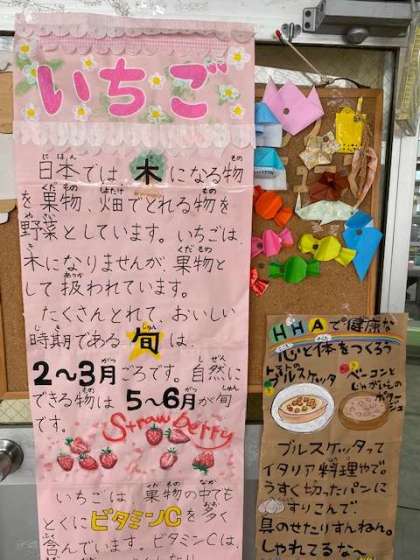 いちご
日本では、木になる物
を果物、畑でとれる物を
野菜としています。いちごは、
木になりませんが、果物と
して扱われています。
たくさんとれて、おいしい
時期である旬は、
2〜3月ごろです。自然に
できる物は5〜6月が旬
です。
Strawberry
いちごは、果物の中でも
とくにビタミンCを多く
含んでいます。ビタミンCは
HHAで健康な
心と体をつくろう
トマトの
ブルスケッタ
ベーコンと
じゃがいもの
ポタージュ
ブルスケッタって
イタリア料理やで。
うすく切ったパンに
すりこんで
具のせたりすんねん。
しゃれてるな〜